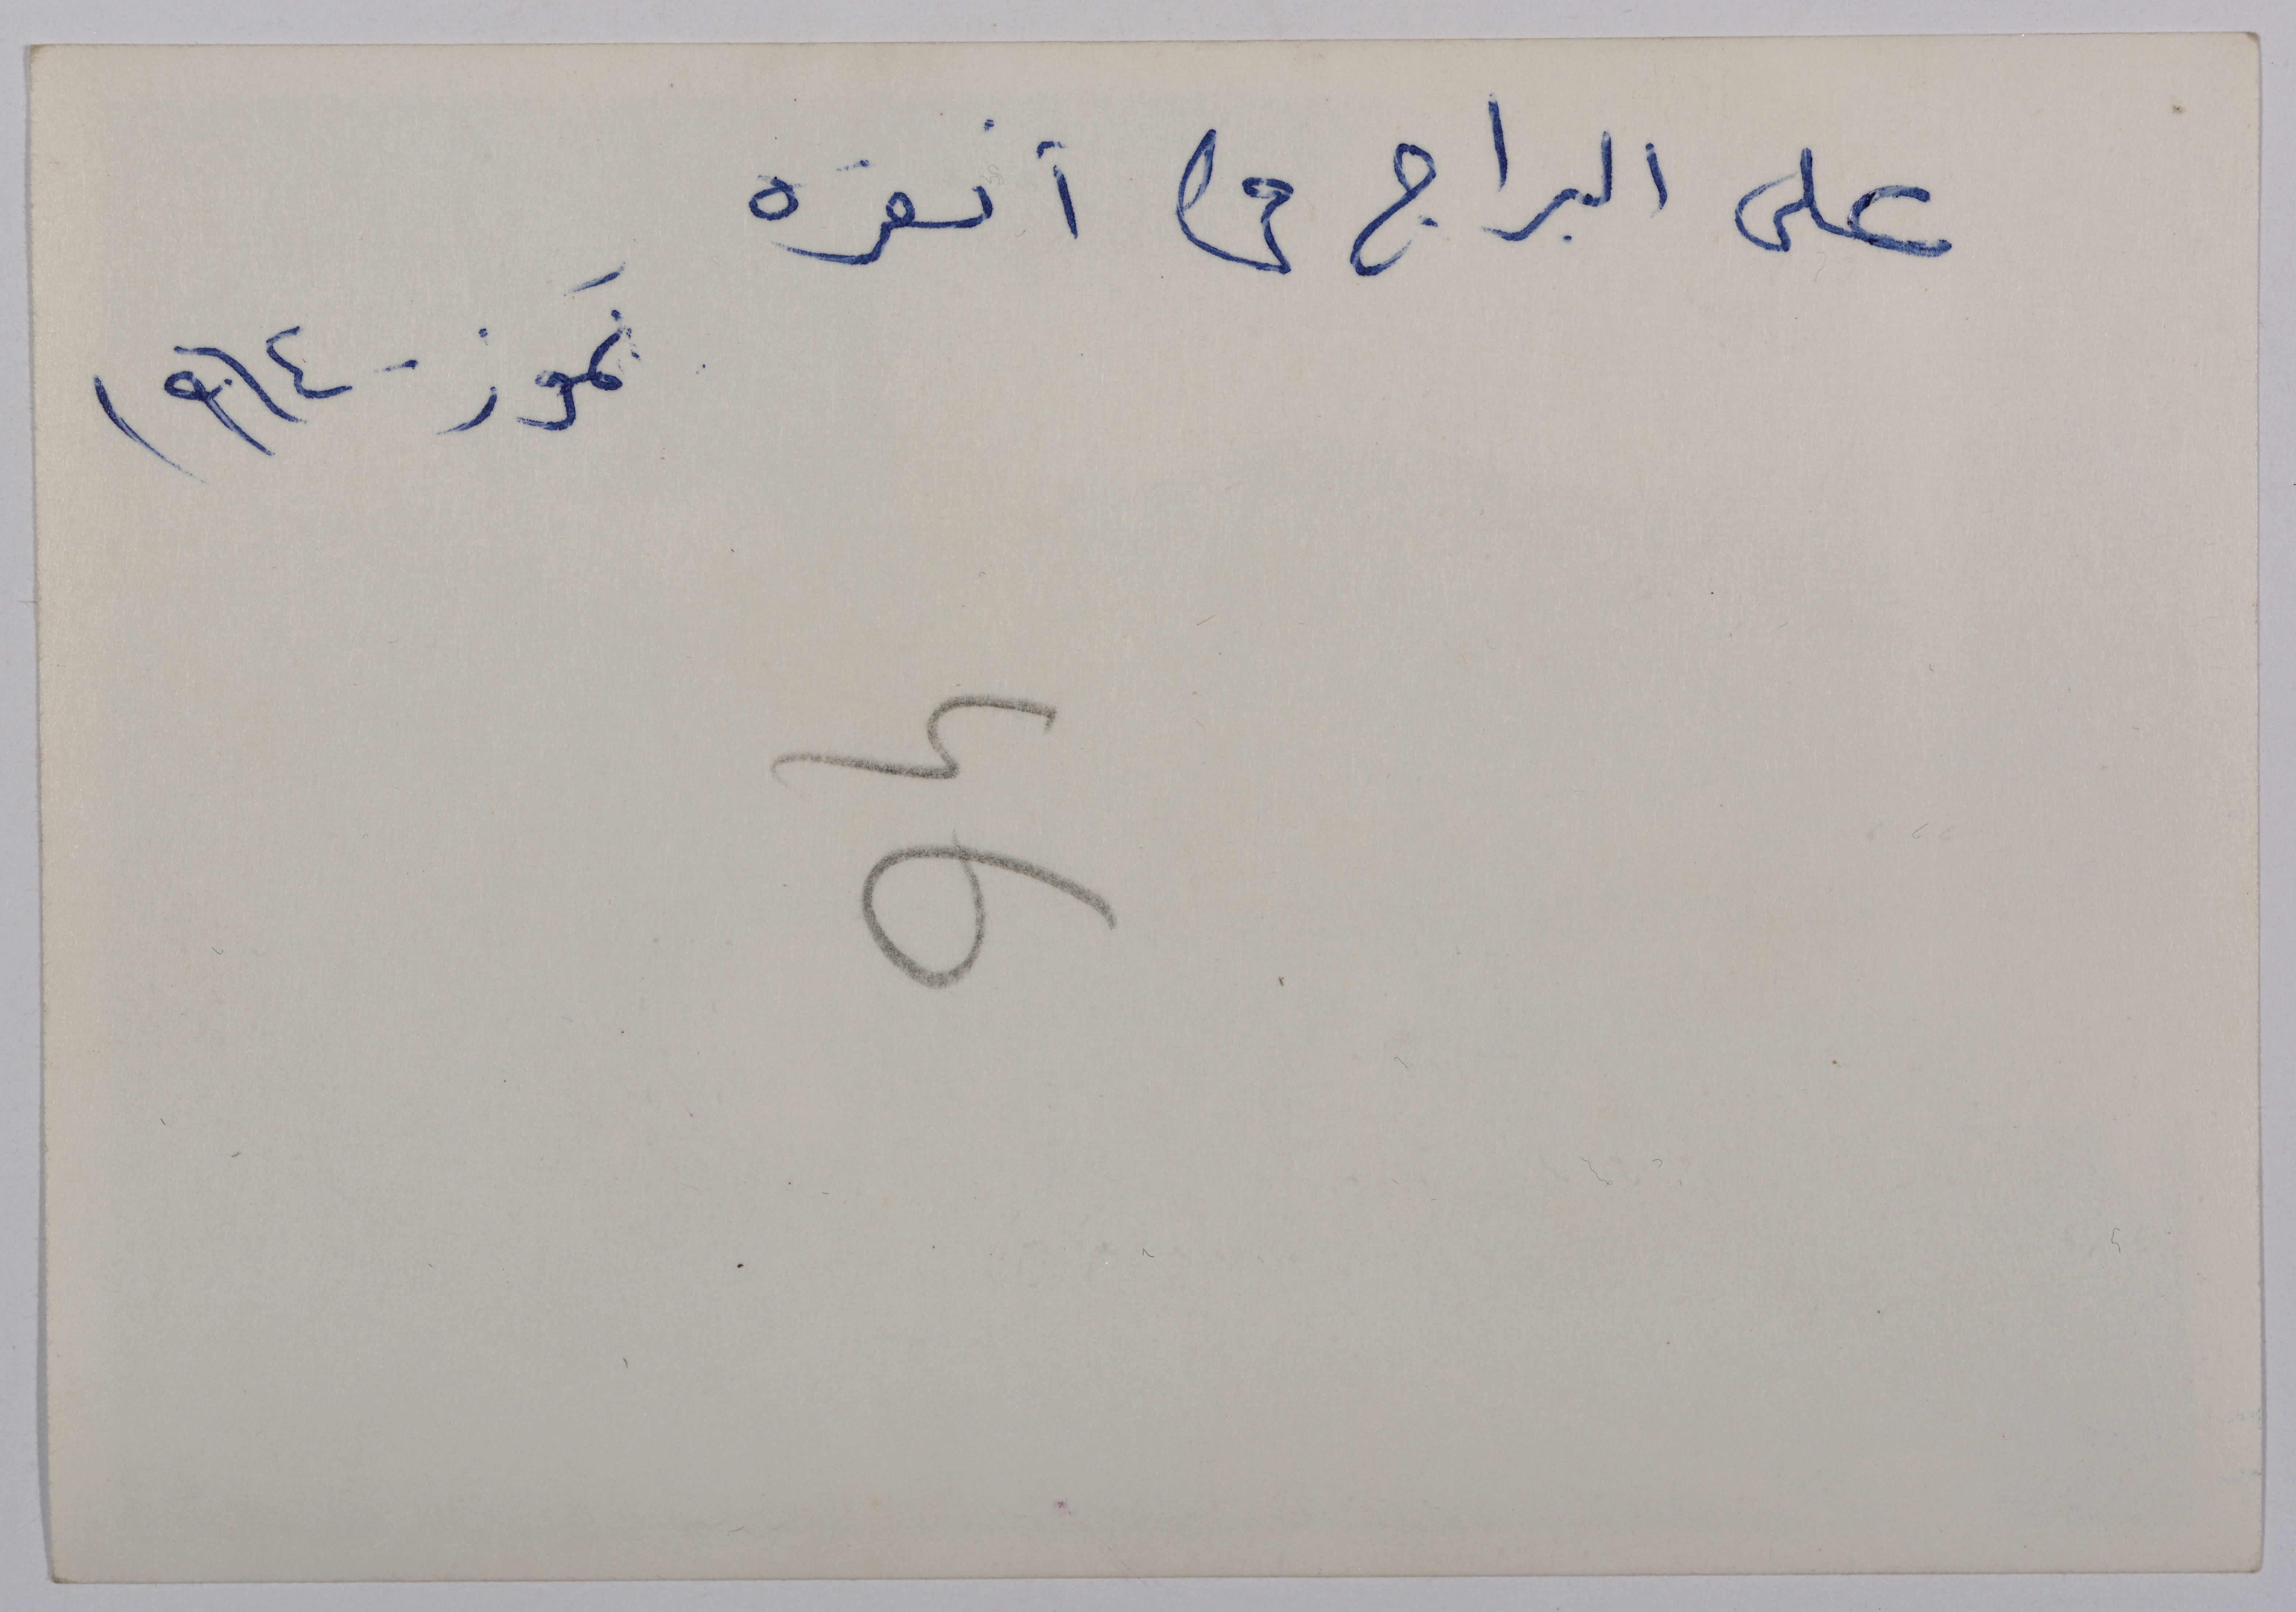 على البراج في أنقره
تموز - ١٩٦٤